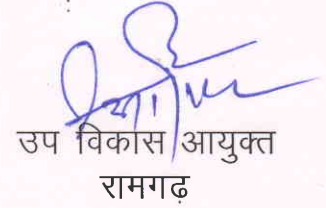 उप विकास आयुक्त
रामगढ़